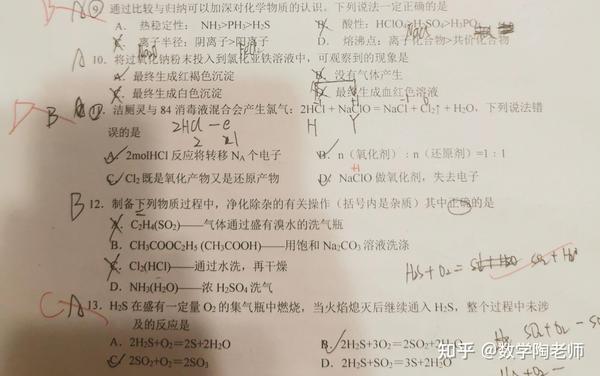 B A ⑨ 通过比较与归纳可以加深对化学物质的认识。下列说法一定正确的是
A. 热稳定性: NH₃>PH₃>H₂S B. 酸性: HClO>H₂SO₄>H₃PO₄
C. 离子半径: 阴离子>阳离子 D. 熔沸点: 离子化合物>共价化合物
A 10. 将过氧化钠粉末投入到氯化亚铁溶液中,可观察到的现象是
A. 最终生成红褐色沉淀 B. 没有气体产生
C. 最终生成白色沉淀 D. 最终生成血红色溶液
D B 11. 洁厕灵与 84 消毒液混合会产生氯气: 2HCl + NaClO = NaCl + Cl₂↑ + H₂O, 下列说法错
误的是 2HCl - e H Y
A. 2molHCl 反应将转移 N_A 个电子 B. n(氧化剂):n(还原剂)=1:1
C. Cl₂ 既是氧化产物又是还原产物 D. NaClO 做氧化剂,失去电子
B 12. 制备下列物质过程中,净化除杂的有关操作(括号内是杂质)其中正确的是
A. C₂H₄(SO₂)——气体通过盛有溴水的洗气瓶
B. CH₃COOC₂H₅ (CH₃COOH)——用饱和 Na₂CO₃ 溶液洗涤
C. Cl₂(HCl)——通过水洗,再干燥
D. NH₃(H₂O)——浓 H₂SO₄ 洗气
H₂S + O₂ =
C A 13. H₂S 在盛有一定量 O₂ 的集气瓶中燃烧,当火焰熄灭后继续通入 H₂S,整个过程中未涉
及的反应是
A. 2H₂S+O₂=2S+2H₂O B. 2H₂S+3O₂=2SO₂+2H₂O
C. 2SO₂+O₂=2SO₃ D. 2H₂S+SO₂=3S+2H₂O
知乎 @数学陶老师